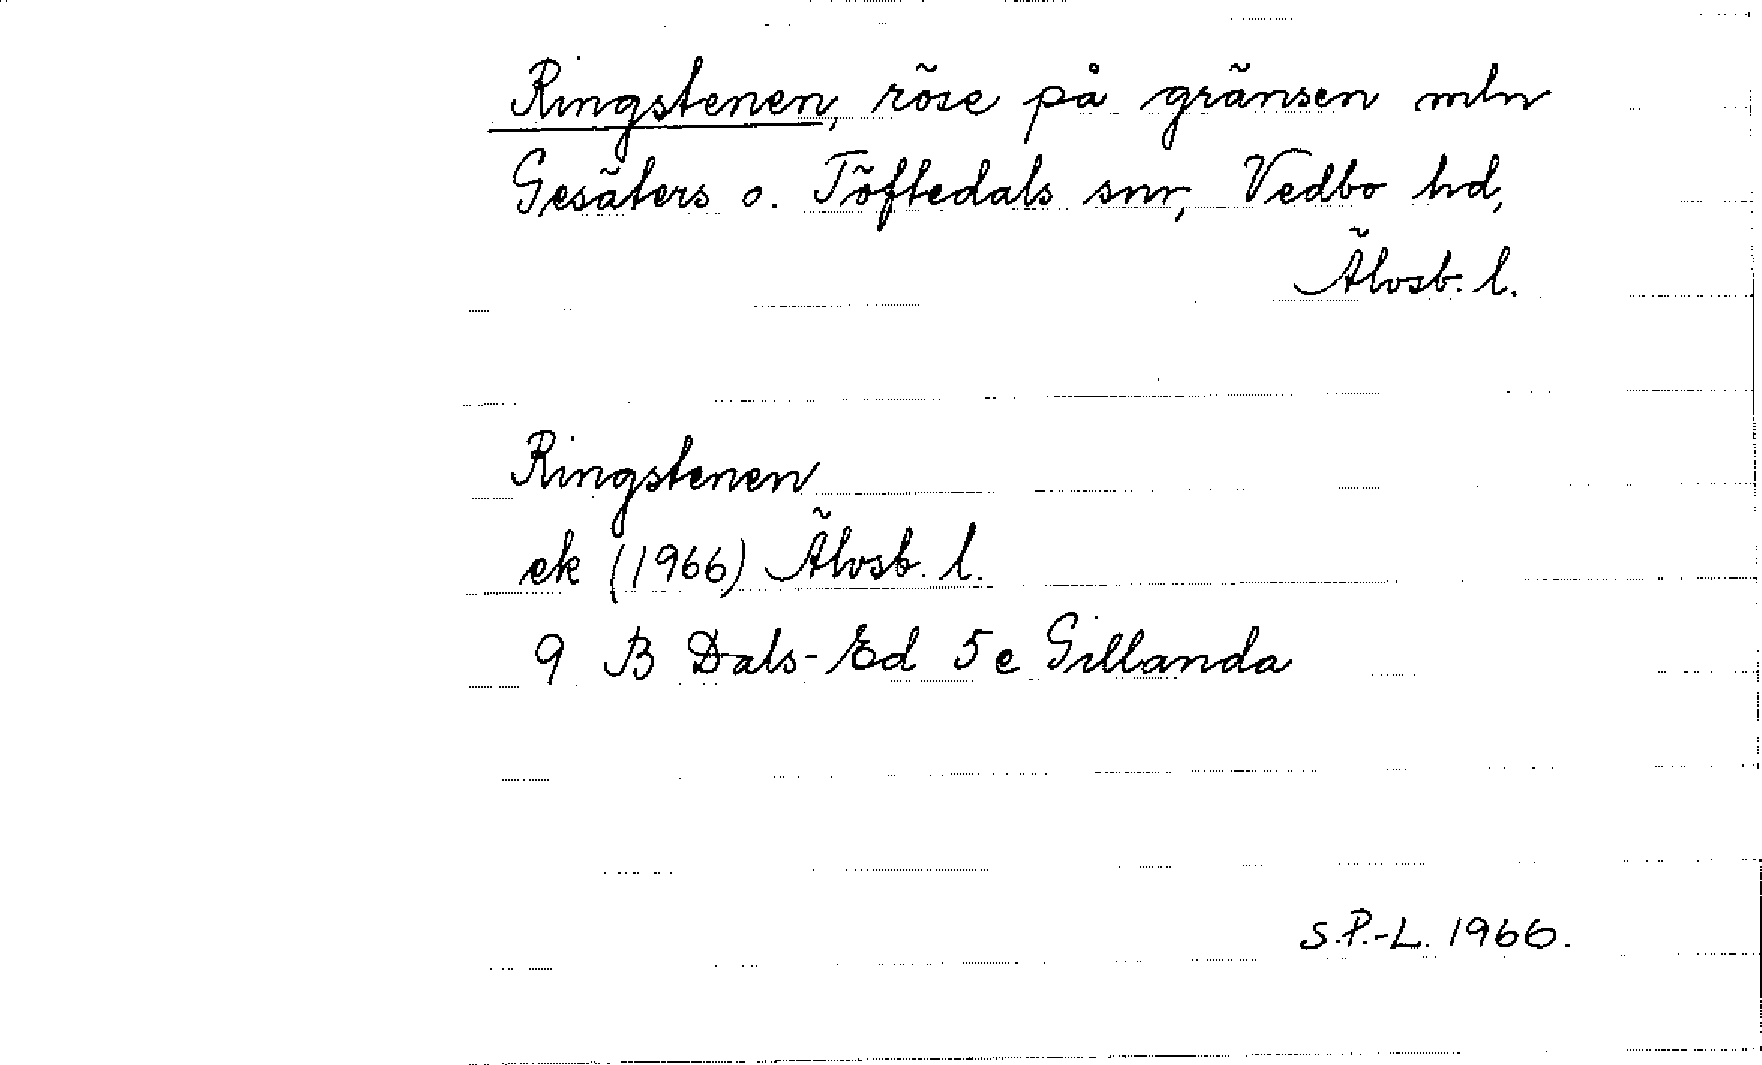 Ringstenen, röse på gränsen mln
Gesäters o. Töftedals snr, Vedbo hd,
Älvsb. l.
Ringstenen
ek (1966) Älvsb. l.
9 B Dals-Ed 5e Gillanda
S.P.-L. 1966.